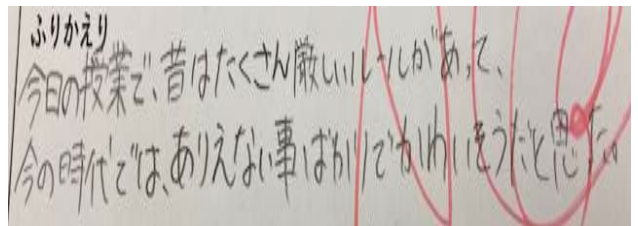 ふりかえり
今日の授業で、昔はたくさん厳しいルールがあって、
今の時代では、ありえない事ばかりでかわいそうだと思った。